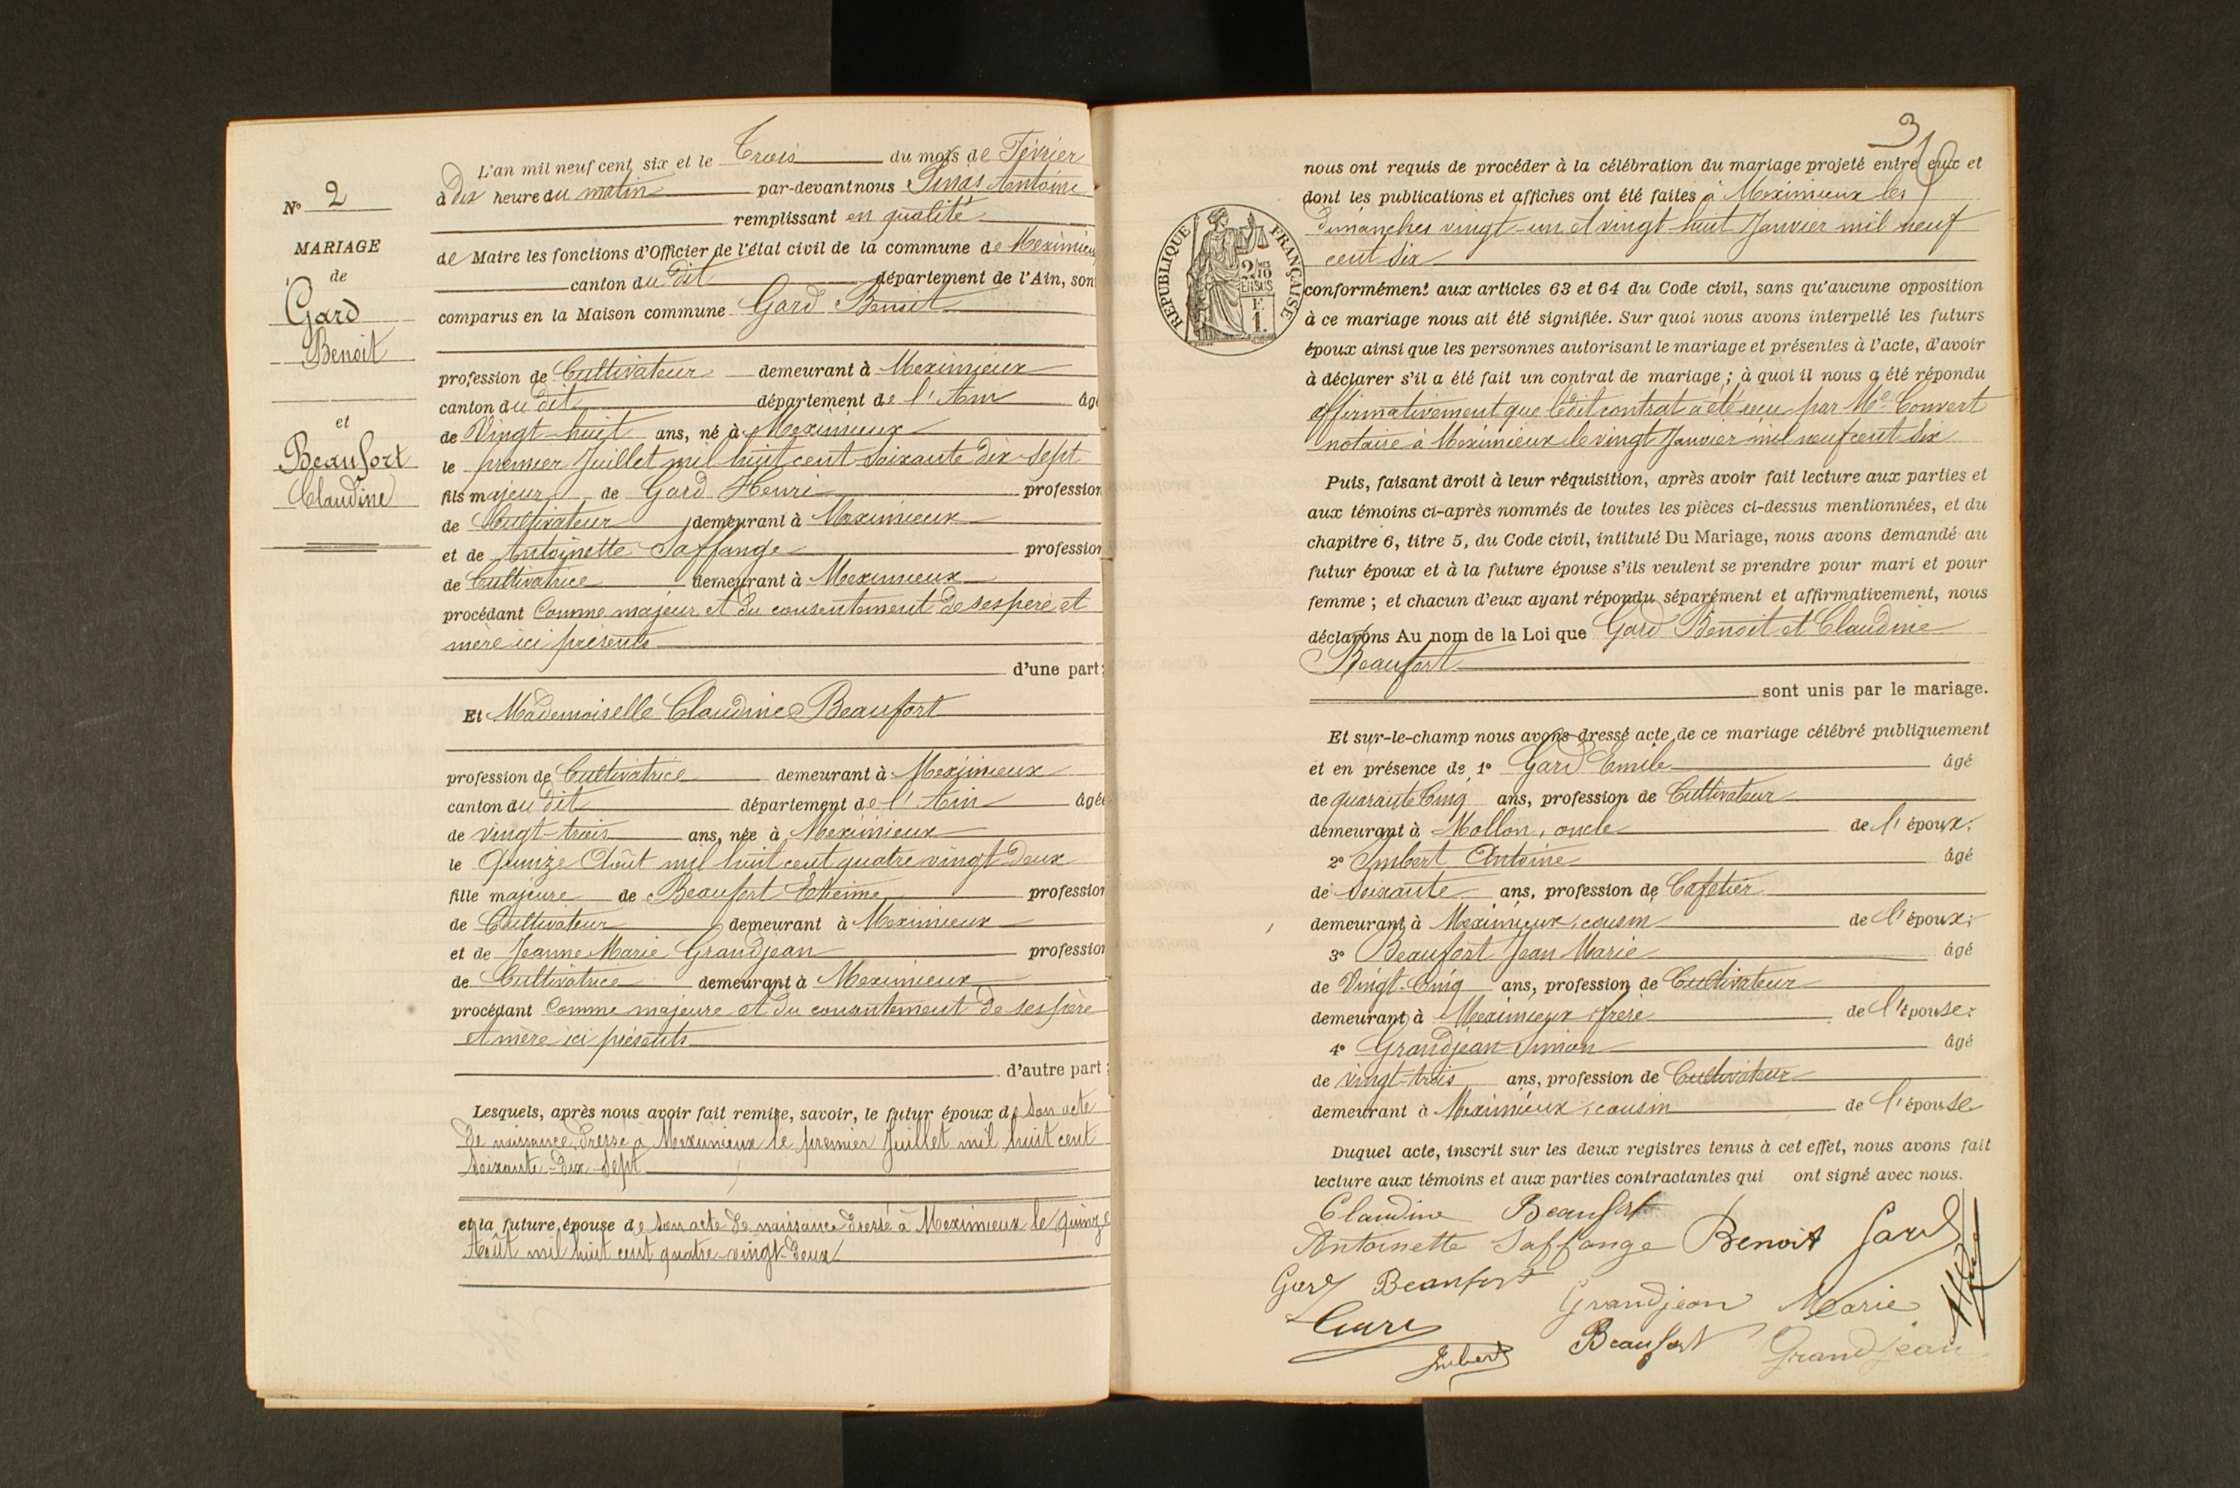 N° 2
MARIAGE
de
Gard
Benoit
et
Beaufort
Claudine
L'an mil neuf cent six et le Trois du mois de Février
à Dix heure du matin par-devant nous Antoine
remplissant en qualité
de Maire les fonctions d'Officier de l'état civil de la commune de Meximieux
canton du dit département de l'Ain, sont
comparus en la Maison commune Gard Benoit
profession de Cultivateur demeurant à Meximieux
canton du dit département de l'Ain âgé
de Vingt-huit ans, né à Meximieux
le premier Juillet mil huit cent soixante dix-sept
fils majeur de Gard Henri profession
de Cultivateur demeurant à Meximieux
et de Antoinette Saffange profession
de Cultivatrice demeurant à Meximieux
procédant Comme majeur et du consentement de ses père et
mère ici présents
d'une part;
Et Mademoiselle Claudine Beaufort
profession de Cultivatrice demeurant à Meximieux
canton du dit département de l'Ain âgée
de vingt-trois ans, née à Meximieux
le Quinze Août mil huit cent quatre vingt Deux
fille majeure de Beaufort Etienne profession
de Cultivateur demeurant à Meximieux
et de Jeanne Marie Grandjean profession
de Cultivatrice demeurant à Meximieux
procédant Comme majeure et du consentement de ses père
et mère ici présents
d'autre part;
Lesquels, après nous avoir fait remise, savoir, le futur époux de son acte
de naissance dressé à Meximieux le premier Juillet mil huit cent
soixante-dix sept
et la future épouse de son acte de naissance dressé à Meximieux le quinze
Août mil huit cent quatre-vingt-deux
3
RÉPUBLIQUE FRANÇAISE
2/10
EN SUS
F.
1.
nous ont requis de procéder à la célébration du mariage projeté entre eux et
dont les publications et affiches ont été faites à Meximieux les
dimanches vingt-un et vingt huit Janvier mil neuf
cent six
conformément aux articles 63 et 64 du Code civil, sans qu'aucune opposition
à ce mariage nous ait été signifiée. Sur quoi nous avons interpellé les futurs
époux ainsi que les personnes autorisant le mariage et présentes à l'acte, d'avoir
à déclarer s'il a été fait un contrat de mariage; à quoi il nous a été répondu
affirmativement que ledit contrat a été reçu par Me Convert
notaire à Meximieux le vingt Janvier mil neuf cent six
Puis, faisant droit à leur réquisition, après avoir fait lecture aux parties et
aux témoins ci-après nommés de toutes les pièces ci-dessus mentionnées, et du
chapitre 6, titre 5, du Code civil, intitulé Du Mariage, nous avons demandé au
futur époux et à la future épouse s'ils veulent se prendre pour mari et pour
femme; et chacun d'eux ayant répondu séparément et affirmativement, nous
déclarons Au nom de la Loi que Gard Benoit et Claudine
Beaufort
sont unis par le mariage.
Et sur-le-champ nous avons dressé acte de ce mariage célébré publiquement
et en présence de 1° Gard Emile âgé
de quarante Cinq ans, profession de Cultivateur
demeurant à Mollon, oncle de l'époux;
2° Imbert Antoine âgé
de soixante ans, profession de Cafetier
demeurant à Meximieux, cousin de l'époux;
3° Beaufort Jean Marie âgé
de Vingt-Cinq ans, profession de Cultivateur
demeurant à Meximieux, frère de l'épouse;
4° Grandjean Simon âgé
de vingt-trois ans, profession de Cultivateur
demeurant à Meximieux, cousin de l'épouse
Duquel acte, inscrit sur les deux registres tenus à cet effet, nous avons fait
lecture aux témoins et aux parties contractantes qui ont signé avec nous.
Claudine Beaufort
Antoinette Saffange Benoit Gard
Gard Beaufort
Grandjean Marie
Imbert Beaufort Grandjean